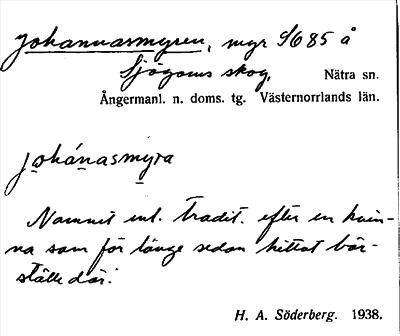 Johannasmyren, myr S685 å
Sjögoms skog, Nätra sn.
Ångermanl. n. doms. tg. Västernorrlands län.
johánasmyra
Namnet enl. tradit. efter en kvin-
na som för länge sedan hittat bär-
ställe där.
H. A. Söderberg. 1938.